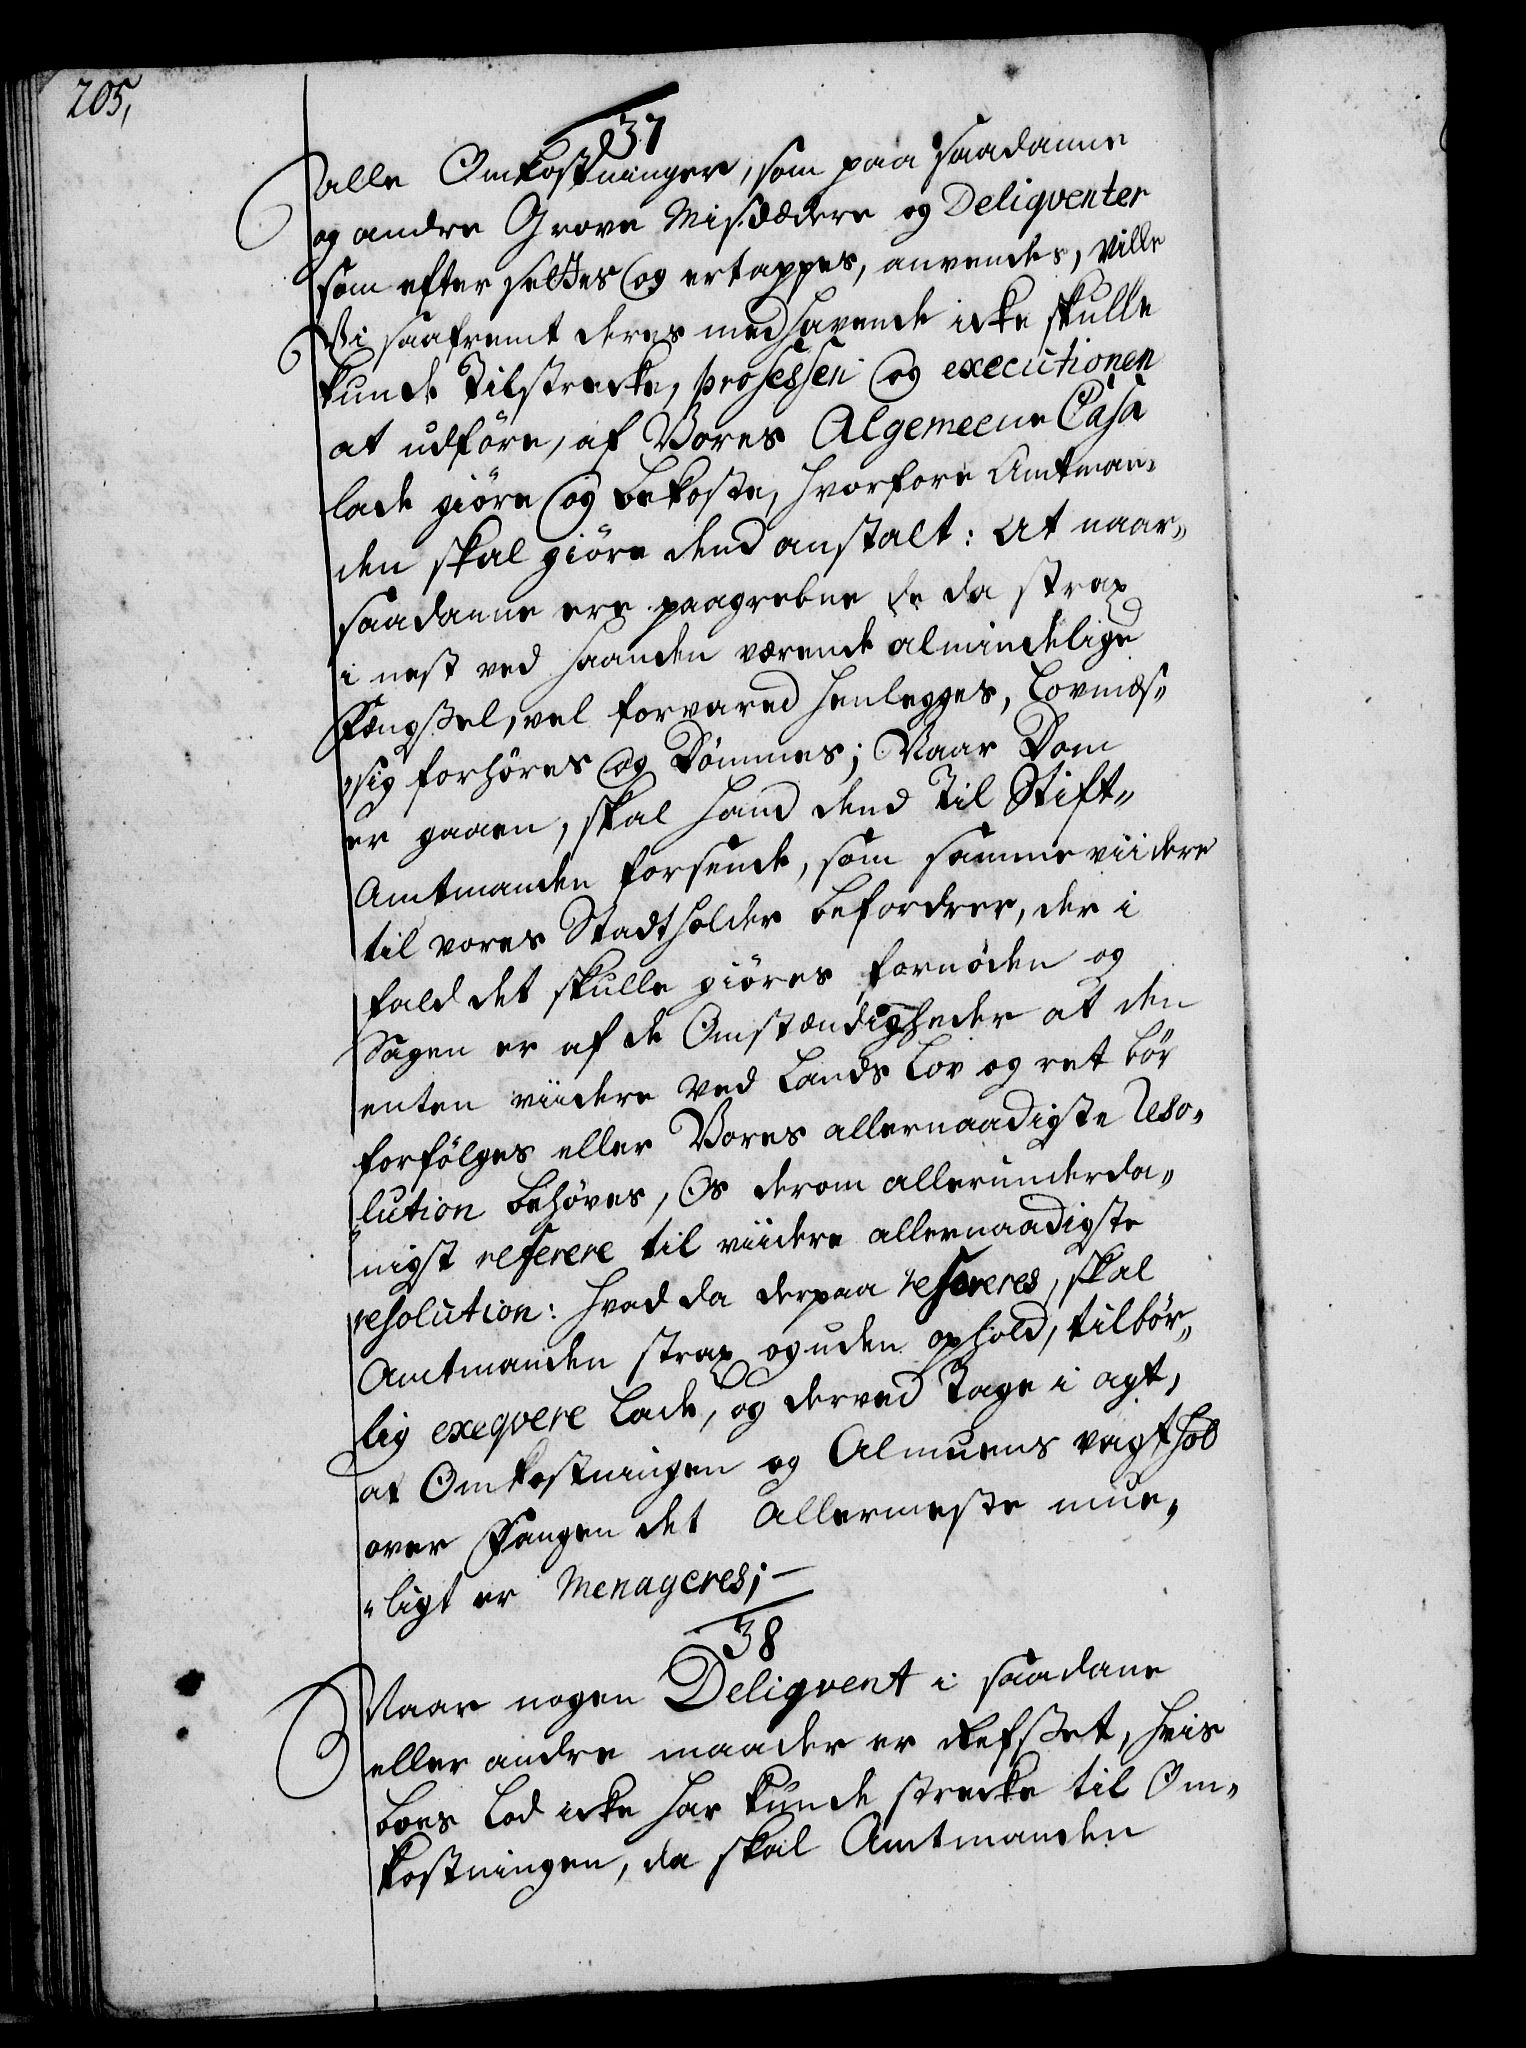 205,
37
alle Omkostninger, som paa saadanne
og andre Grove Misdædere og Deliqventer
som efter settes og ertappes, anvendes, ville
Vi saafremt deres medhavende icke skulle
kunde Tilstrecke, prosessen og executionen
at udföre, af Vores Algemeene Casa
lade giöre og bekoste, hvorfore Amtman„
den skal giöre dend anstalt: at naar„
saadanne ere paagrebne de da strax
i nest ved haanden værende almindelige
Fængsel, vel forvared henlegges, Lovmæs„
„sig forhöres og Dömmes; Naar Dom
er gaaen, skal hand dend Til Stift„
Amtmanden forsende, som samme viidere
til vores Stadtholder befordrer, der i
fald det skulle giöres fornöden og
Sagen er af de Omstændigheder at den
enten viidere ved Lands Lov og ret bör
forfölges eller Vores allernaadigste Reso„
lution behöves, Os derom allerunderda„
nigst referere til viidere allernaadigste
resolution: hvad da derpaa resoveres, skal
Amtmanden strax og uden ophold, tilbör„
lig exeqvere lade, og derved Tage i agt,
at Omkostningen og Almuens vagthold
over Fangen det Allermeste mue„
„ligt er Menageres; —
38
Naar nogen Deliqvent i saadane
eller andre maader er Refset, hvis
boes Lod icke har kunde strecke til Om„
kostningen, da skal Amtmanden